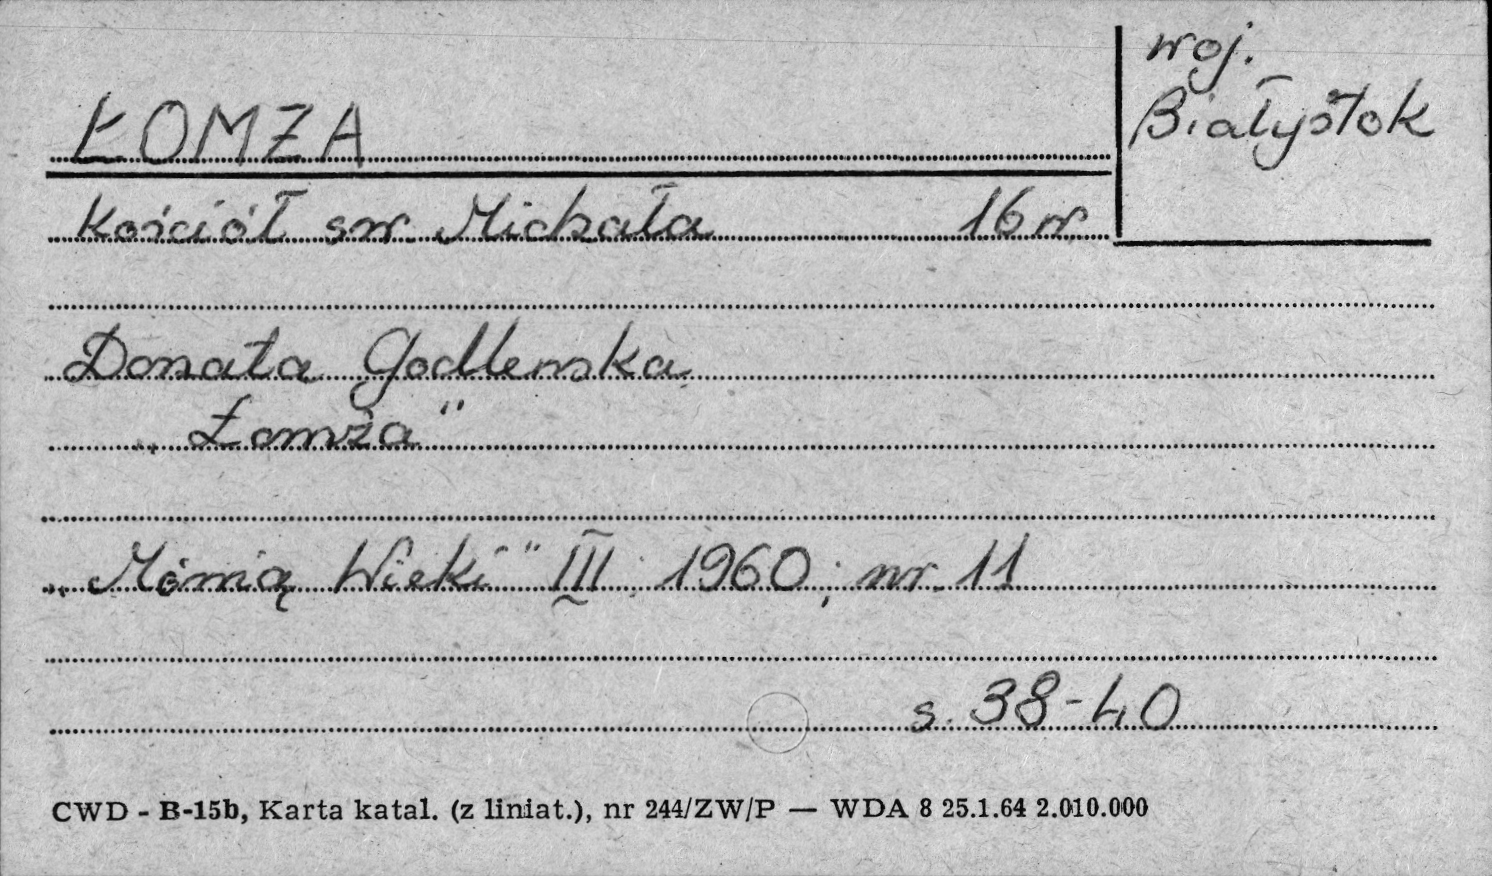 woj.
Białystok
ŁOMŻA
Kościół św. Michała 16 w.
Donata Godlewska
„Łomża"
„Mówią Wieki" III : 1960 ; nr 11
s. 38-40
CWD - B-15b, Karta katal. (z liniat.), nr 244/ZW/P — WDA 8 25.1.64 2.010.000